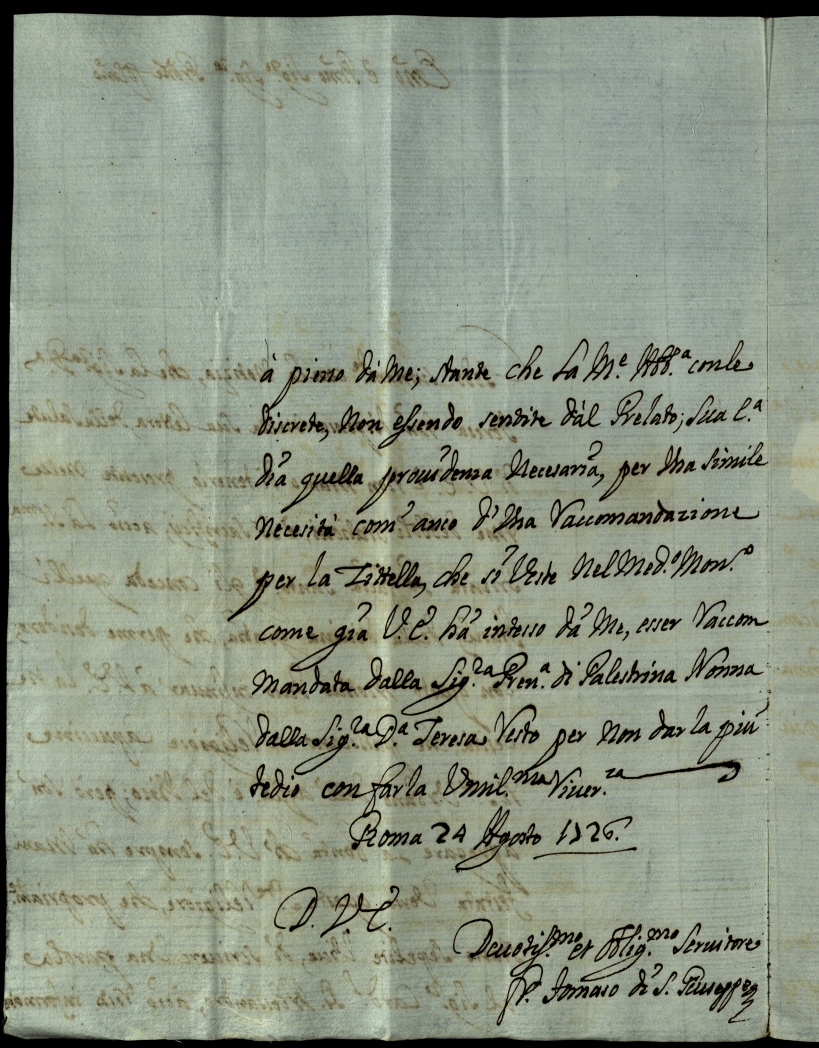 à pieno dà Me, stante che La M.e Abb.a con le
discrete, Non essendo sentite dàl Prelato; Sua E.a
dià quella prouidenza Necesarià, per Una simile
Necesità com' anco d'Una Raccomandazione
per la Zittella, che si Veste Nel Med.o Mon.o
come già V.E. hà intesso dà Me, esser Raccom
mandata dalla Sig.ra Pren.a di Palestrina Nonna
dalla Sig.ra D.a Teresa, Resto per Non dar la più
tedio con farla Umil.ma River.za
Roma 24 Agosto 1726.
D. V. E.
Deuotis.mo et Oblig.mo Seruitore
Fr. Tomaso di S. Giuseppe